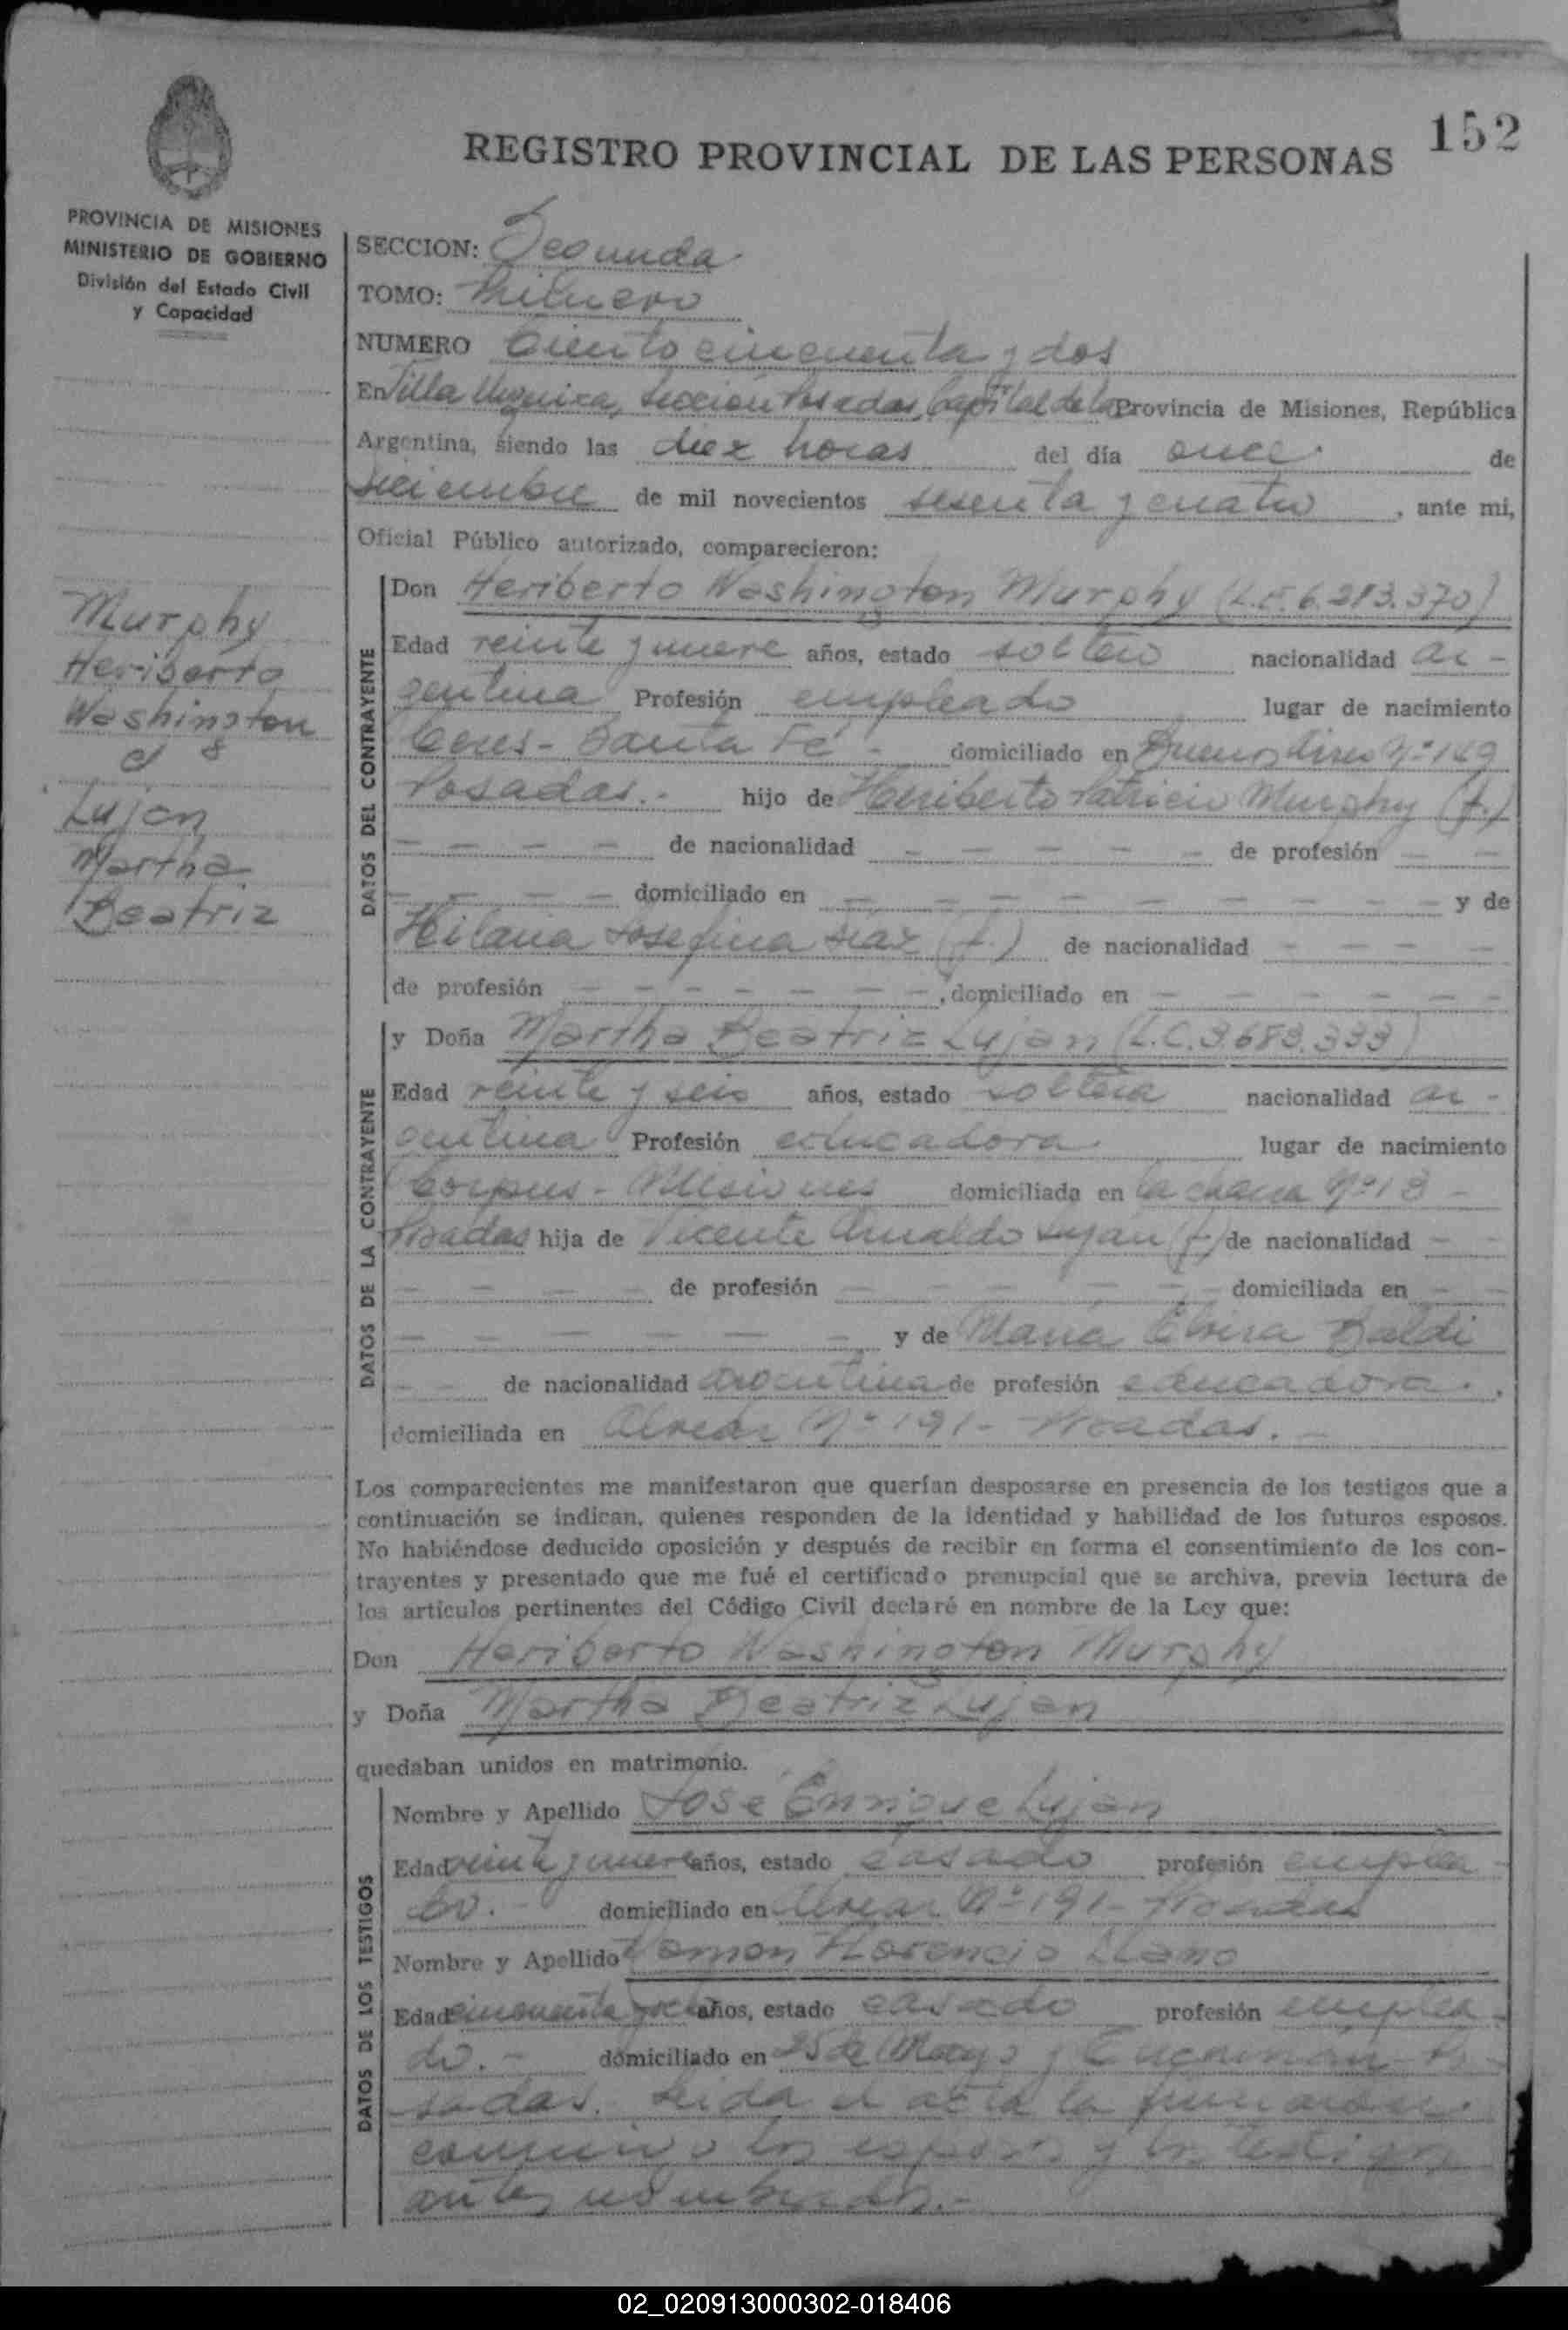 152
REGISTRO PROVINCIAL DE LAS PERSONAS
PROVINCIA DE MISIONES
MINISTERIO DE GOBIERNO
División del Estado Civil
y Capacidad
SECCION: Segunda
TOMO: Primero
NUMERO Ciento cincuenta y dos
En Villa Urquiza, Sección Posadas, Capital de la Provincia de Misiones, República
Argentina, siendo las diez horas del día once de
diciembre de mil novecientos sesenta y cuatro, ante mi,
Oficial Público autorizado, comparecieron:
Murphy
Heriberto
Washington
Lujan
Martha
Beatriz
DATOS DEL CONTRAYENTE
Don Heriberto Washington Murphy (L.E. 6.283.370)
Edad veinte y nueve años, estado soltero nacionalidad ar-
gentina Profesión empleado lugar de nacimiento
Ceres - Santa Fé - domiciliado en Buenos Aires Nº 149
Posadas.- hijo de Heriberto Patricio Murphy (f.)
— — — — de nacionalidad — — — — — de profesión — —
— — — — domiciliado en — — — — — — — y de
Hilaria Josefina Diaz (f.) de nacionalidad — — — —
de profesión — — — — — — —, domiciliado en — — — — — —
DATOS DE LA CONTRAYENTE
y Doña Martha Beatriz Lujan (L.C. 3.683.333)
Edad veinte y seis años, estado soltera nacionalidad ar-
gentina Profesión educadora. lugar de nacimiento
Corpus - Misiones domiciliada en la chacra Nº 13 -
Posadas hija de Vicente Arnaldo Luján (f.) de nacionalidad — —
— — — — de profesión — — — — — domiciliada en — —
— — — — — — y de María Elvira Baldi
— — de nacionalidad argentina de profesión educadora.
domiciliada en Alvear Nº 191 - Posadas. -
Los comparecientes me manifestaron que querían desposarse en presencia de los testigos que a
continuación se indican, quienes responden de la identidad y habilidad de los futuros esposos.
No habiéndose deducido oposición y después de recibir en forma el consentimiento de los con-
trayentes y presentado que me fué el certificado prenupcial que se archiva, previa lectura de
los artículos pertinentes del Código Civil declaré en nombre de la Ley que:
Don Heriberto Washington Murphy
y Doña Martha Beatriz Lujan
quedaban unidos en matrimonio.
DATOS DE LOS TESTIGOS
Nombre y Apellido José Enrique Lujan
Edad veinte y nueve años, estado casado profesión emplea-
do.- domiciliado en Alvear Nº 191 - Posadas
Nombre y Apellido Ramon Florencio Llano
Edad cincuenta y años, estado casado profesión emplea-
do.- domiciliado en 25 de Mayo y Tucumán - Po-
sadas. Leida el acta la firmaron
conmigo los esposos y los testigos
antes nombrados.-
02_020913000302-018406